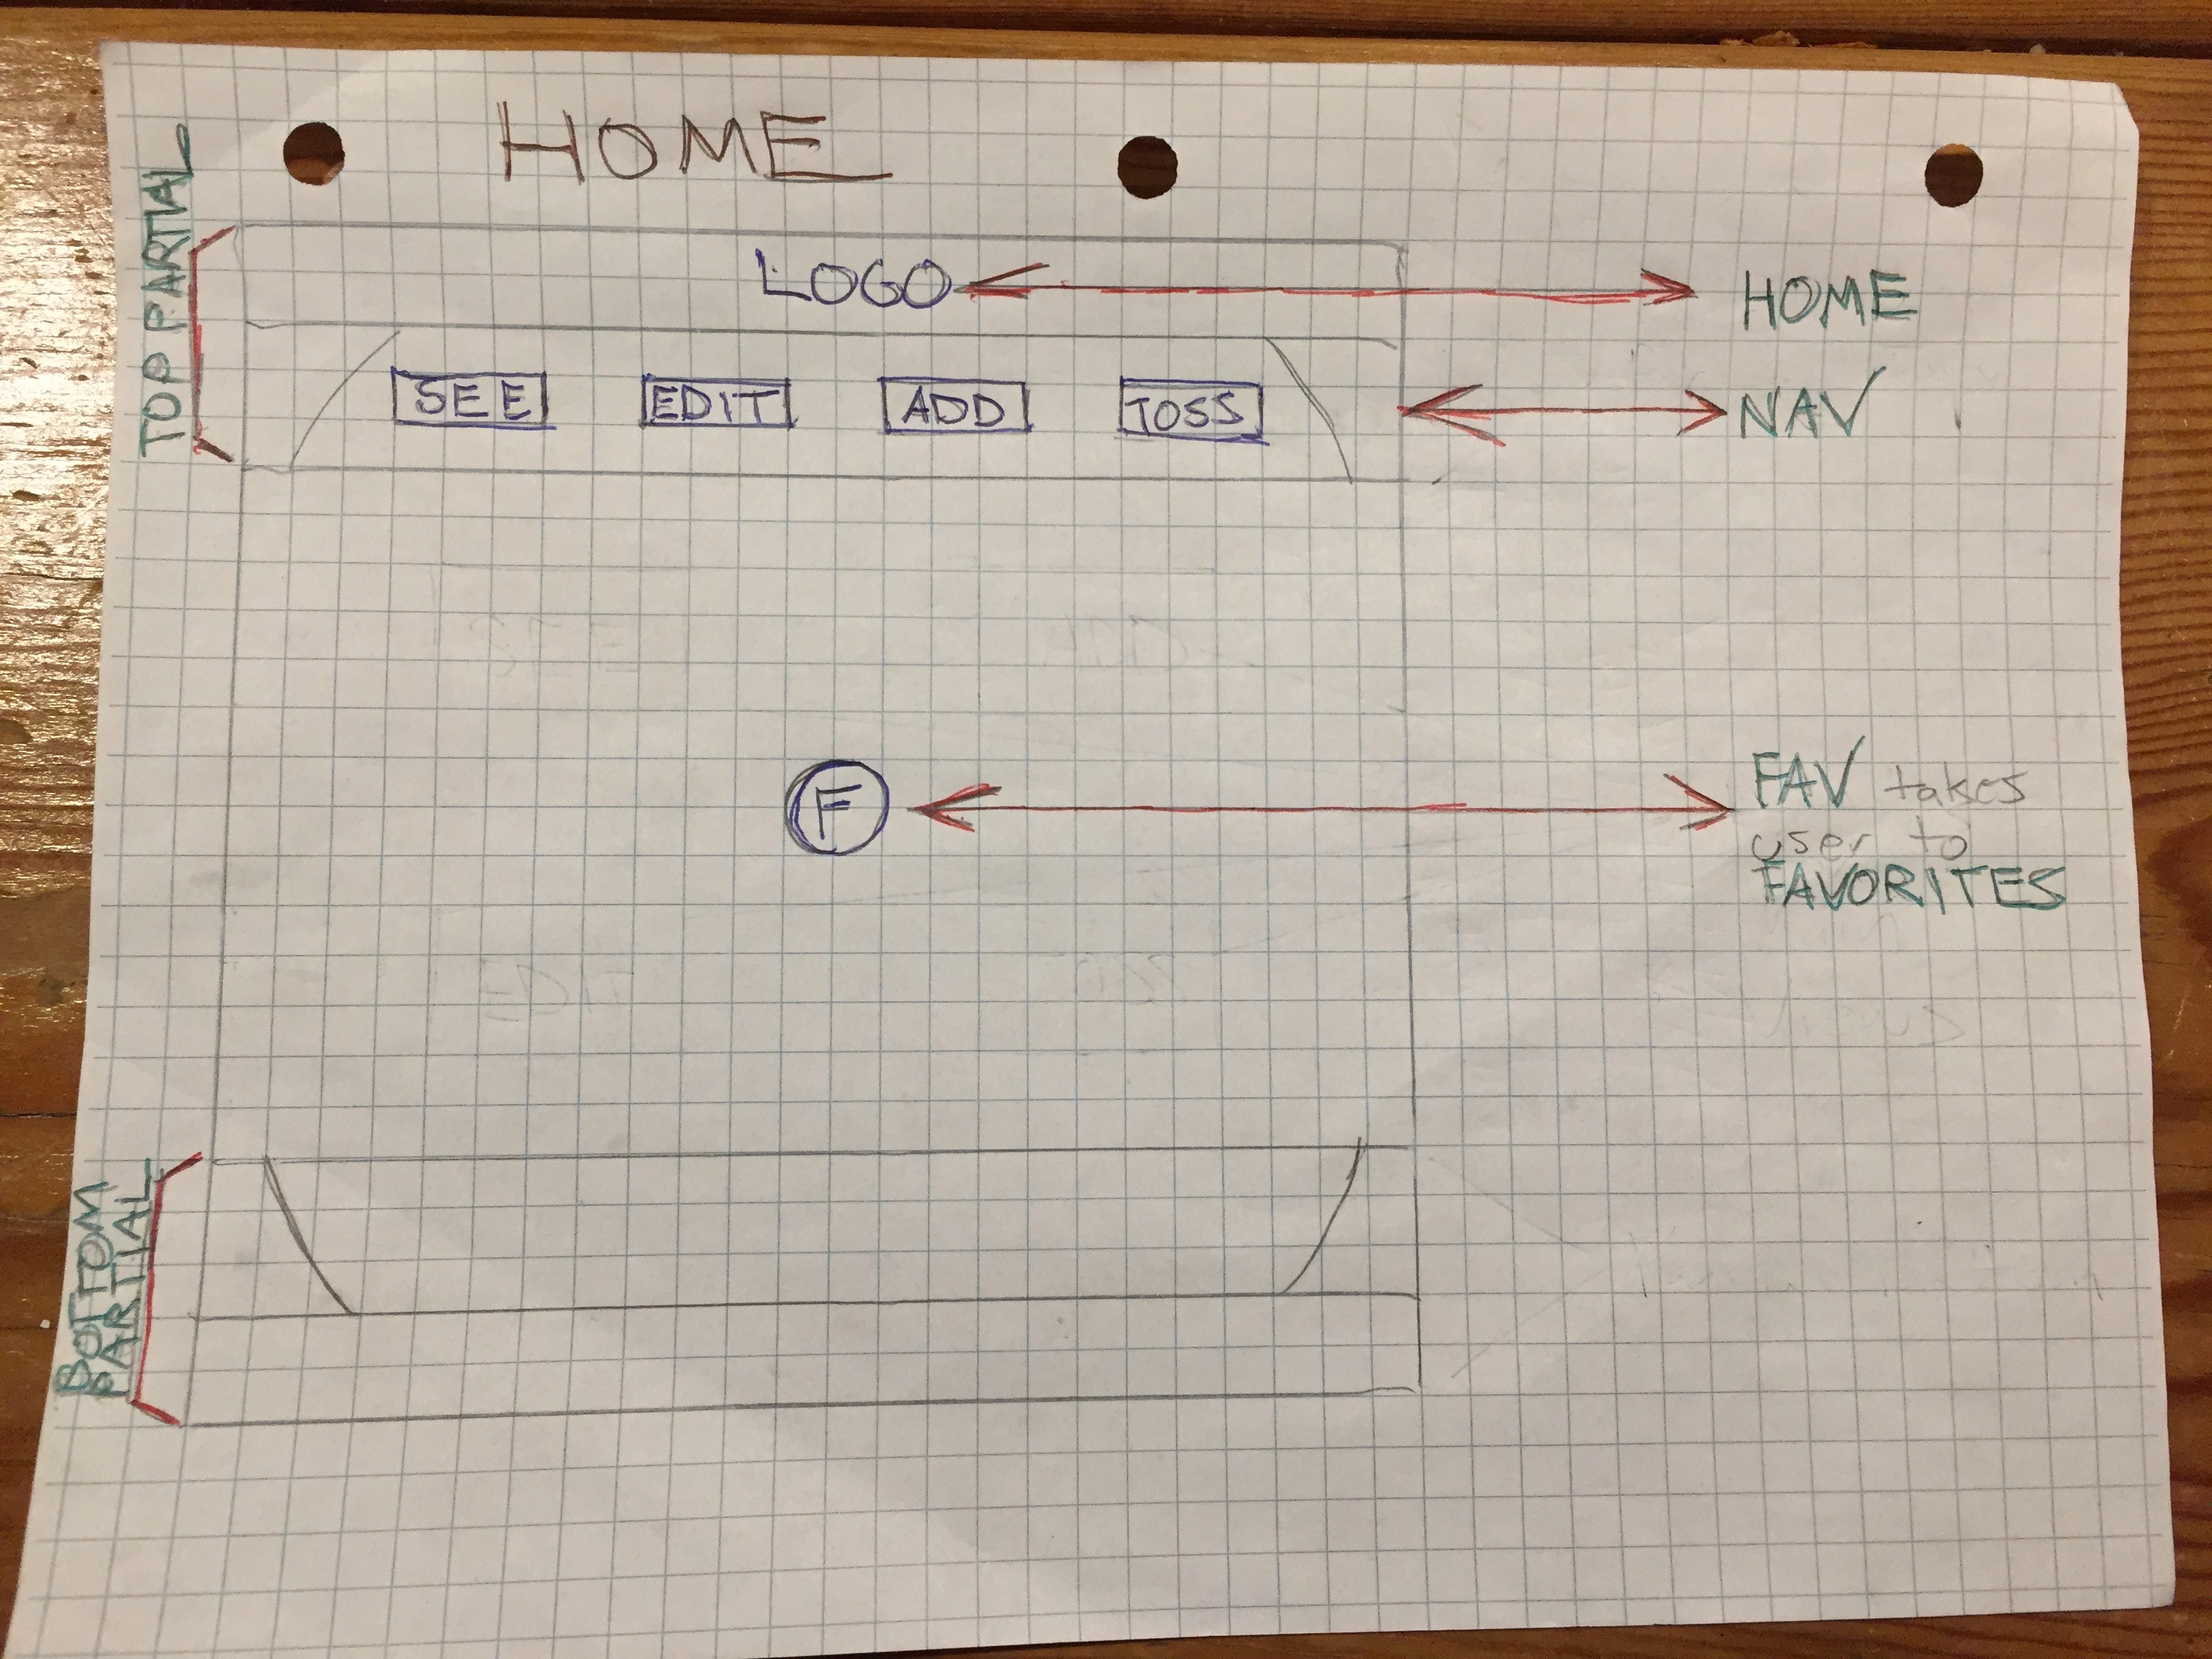 HOME
TOP PARTIAL
LOGO
HOME
SEE EDIT ADD TOSS
NAV
F
FAV takes
user to
FAVORITES
BOTTOM
PARTIAL